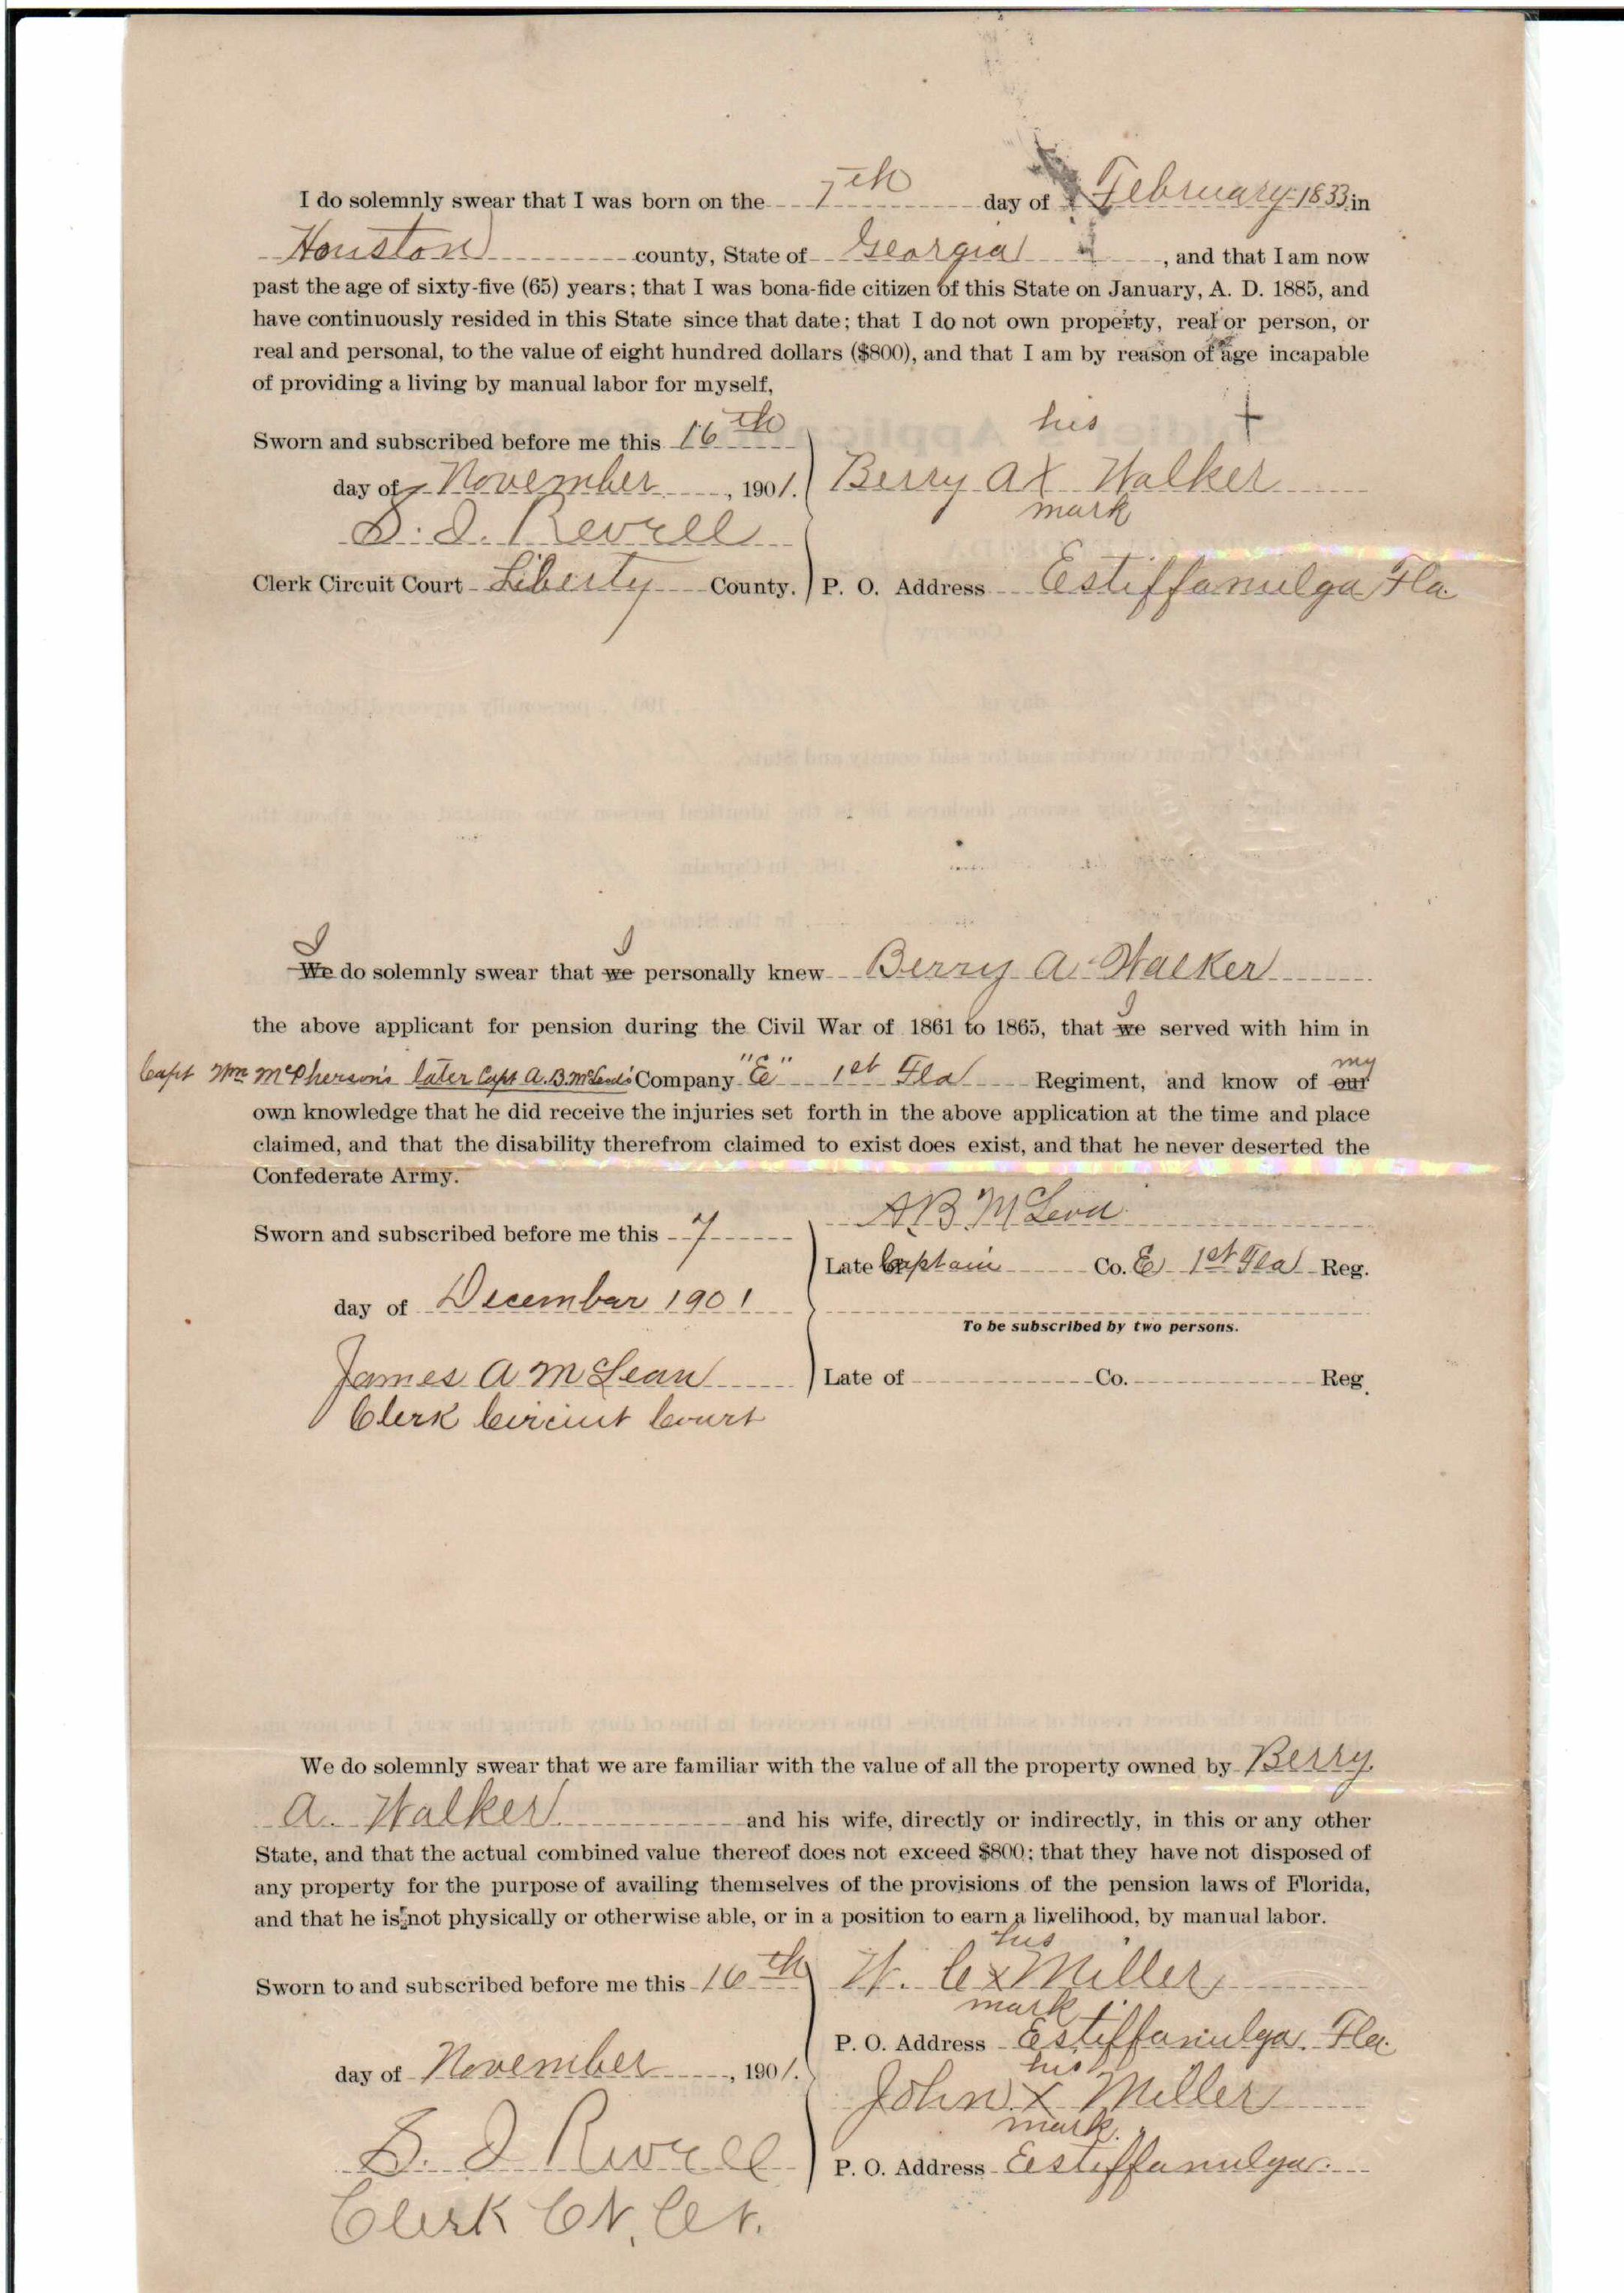 I do solemnly swear that I was born on the 7th day of February 1833 in
Houston county, State of Georgia, and that I am now
past the age of sixty-five (65) years; that I was bona-fide citizen of this State on January, A. D. 1885, and
have continuously resided in this State since that date; that I do not own property, real or person, or
real and personal, to the value of eight hundred dollars ($800), and that I am by reason of age incapable
of providing a living by manual labor for myself,
his
Sworn and subscribed before me this 16th
day of November, 1901. Berry A X Walker
mark
Clerk Circuit Court Liberty County. P. O. Address Estiffanulga Fla.
I I
We do solemnly swear that we personally knew Berry A. Walker
I
the above applicant for pension during the Civil War of 1861 to 1865, that we served with him in
my
Capt Wm McPherson's later Capt A. B. McLeod's Company "E" 1st Fla Regiment, and know of our
own knowledge that he did receive the injuries set forth in the above application at the time and place
claimed, and that the disability therefrom claimed to exist does exist, and that he never deserted the
Confederate Army.
A B McLeod
Sworn and subscribed before me this 7
Late Captain Co. E 1st Fla Reg.
day of December 1901
To be subscribed by two persons.
James A McLean Late of Co. Reg.
Clerk Circuit Court
We do solemnly swear that we are familiar with the value of all the property owned by Berry
A. Walker and his wife, directly or indirectly, in this or any other
State, and that the actual combined value thereof does not exceed $800; that they have not disposed of
any property for the purpose of availing themselves of the provisions of the pension laws of Florida,
and that he is not physically or otherwise able, or in a position to earn a livelihood, by manual labor.
his
Sworn to and subscribed before me this 16th W. C X Miller
mark
P. O. Address Estiffanulga. Fla.
his
day of November, 1901.
John X Miller
mark.
P. O. Address Estiffanulga.
Clerk Ct. Ct.